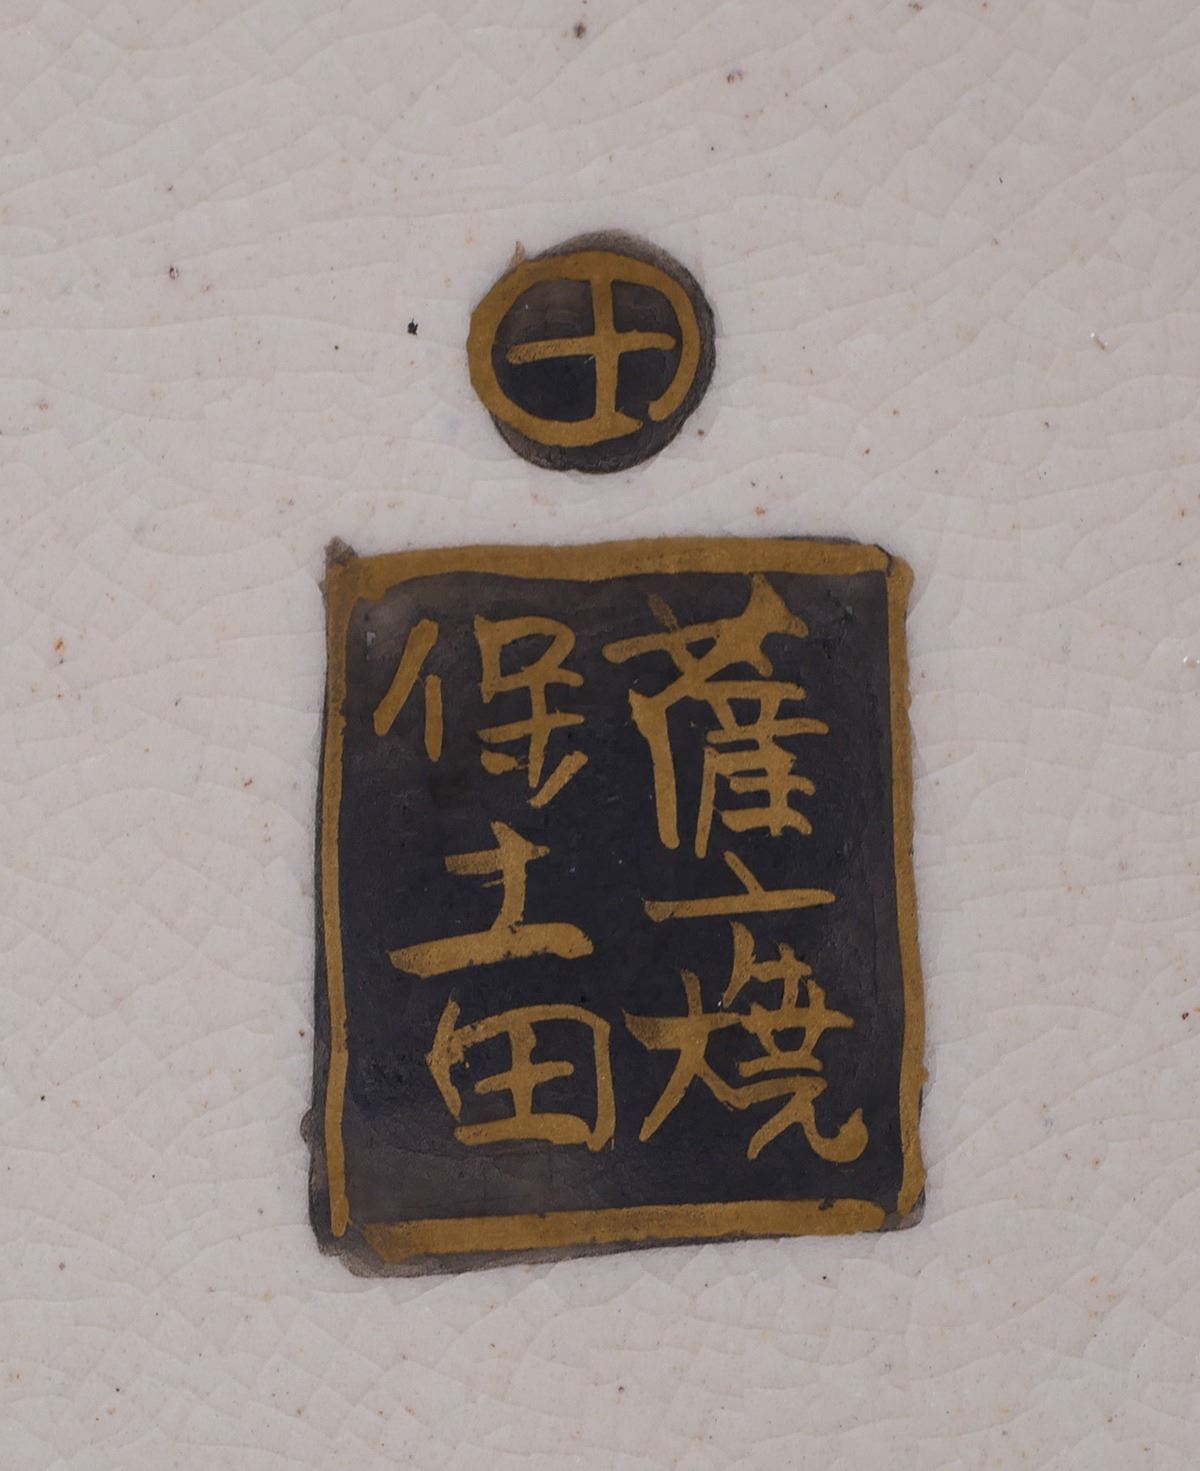 薩广焼
保土田